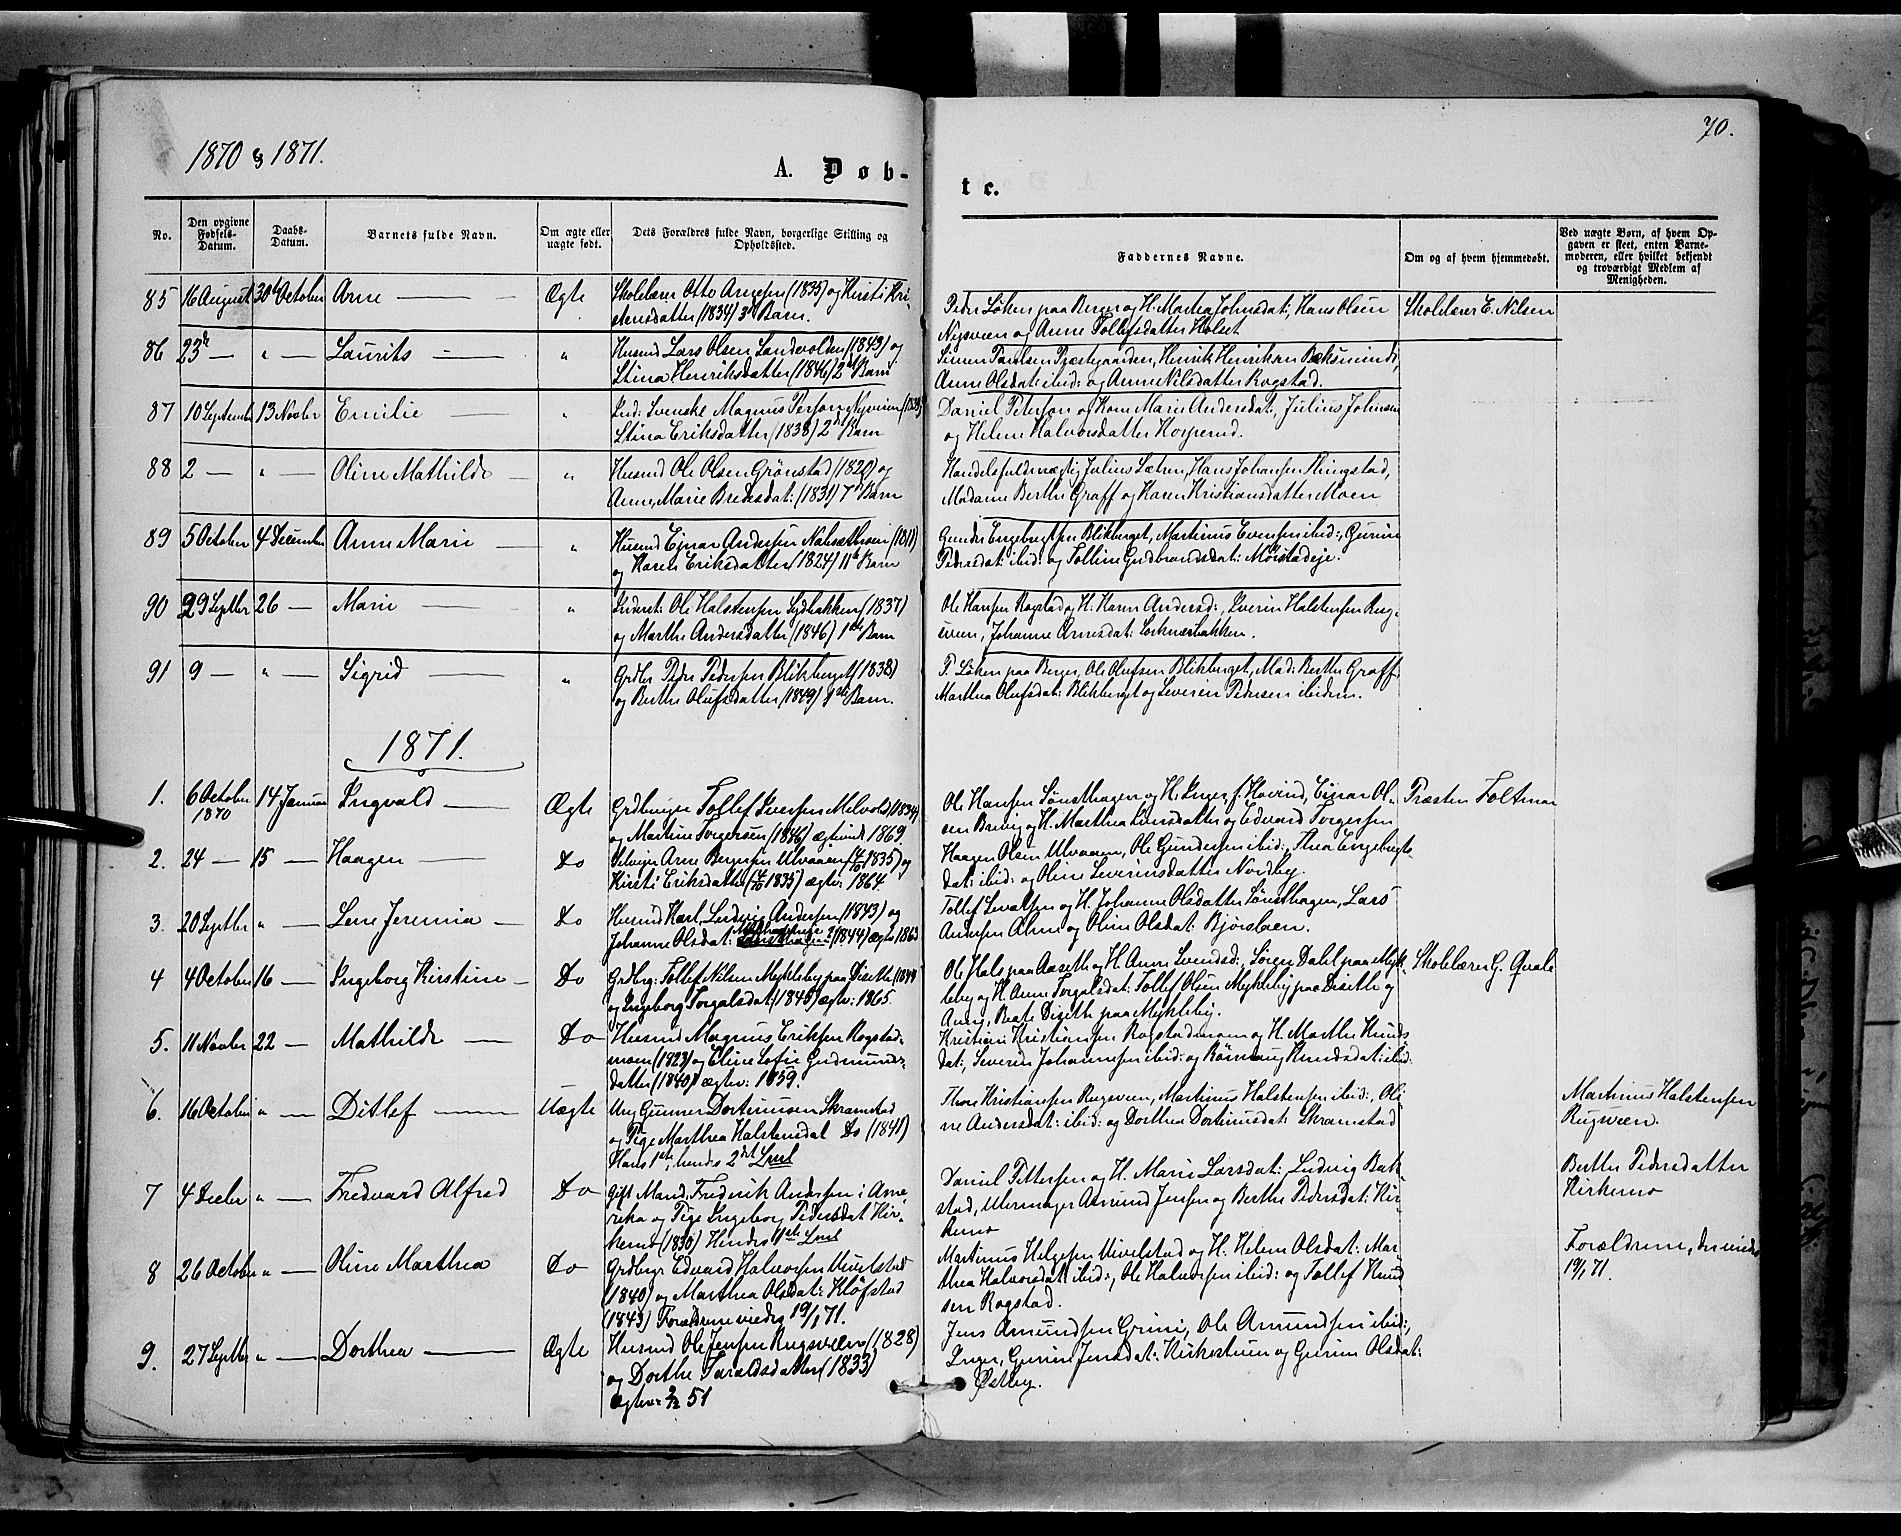 70.
1870 & 1871.
A. Døb-
te.
No.
Den opgivne Fødsels-Datum.
Daabs-Datum.
Barnets fulde Navn.
Om ægte eller uægte født.
Dets Forældres fulde Navn, borgerlige Stilling og Opholdssted.
Faddernes Navne.
Om og af hvem hjemmedøbt.
Ved uægte Børn, af hvem Opgaven er skeet, enten Barnemoderen, eller hvilket bekjendt og troværdigt Medlem af Menigheden.
85 16 August 30te October Arne — Ægte Skolelærer Otto Arnesen (1835) og Kirsti Kri-
stensdatter (1834) 3die Barn.
Peder Løken paa Berger og H. Marthea Johnsdat:, Hans Olsen Skolelærer E. Nilsen
Nysveen og Anne Tollefsdatter Holset
86 23de — " — Laurits — " Husmd Lars Olsen Sandvolden (1843) og
Stina Henriksdatter (1846) 2det Barn
Simen Paulsen Præstegaarden, Henrik Henriksen
Anne Olsdat: ibid: og Anne Nilsdatter Rogstad.
87 10 Septembr 13 Novbr Emilie — " Ind: Svenske Magnus Person Nysveen
Stina Eriksdatter (1838) 2det Barn
Daniel Peterson og Kone Marie Andersdat:, Julius Johnsen
og Helene Halvorsdatter Korperud.
88 2 — " — Oline Mathilde — " Husmd Ole Olsen Grønstad (1820) og
Anne Marie Bredesdat: (1831) 7de Barn
Handelsfuldmægtig Julius Sætren, Hans Johansen Ringstad,
Madame Berthe Graff og Karen Kristiansdatter Moen
89 5 October 4 December Anne Marie — " Husmd Ejnar Andersen
og Karen Eriksdatter (1824) 11te Barn
Gunder Engebregtsen Blikberget, Martinus Evensen ibid:, Gurine
Pedersdat: ibid: og Tolline Gudbrandsdat: Møistadeje.
90 29 Septbr 26 — Marie — " Inderst: Ole Halstensen Sydbakken (1837)
og Marthe Andersdatter (1846) 1ste Barn
Ole Hansen Rogstad og H. Karen Andersd:, Iverin Halstensen Rug-
sveen, Johanne Arnesdat:
91 9 — " — Sigrid — " Grdbr Peder Pedersen Blikberget (1838)
og Berthe Olufsdatter (1849) 1ste Barn.
P. Løken paa Berger, Ole Olufsen Blikberget, Mad: Berthe Graff
Marthea Olufsdat: Blikberget og Severin Pedersen ibidem.
1871.
1. 6 October 14 Januar Ingvald — Ægte Grdbruger Tollef Iversen Melvold (1834)
1870
og Martine Torgersen (1846) ægteviede 1869.
Ole Hansen Sønsthagen og H. Inger f. Hovind, Einar Ol- Præsten Foltmar
sen Brevig og H. Marthea Larsdatter og Edvard Torgersen
2. 24 — 15 — Haagen — Do Selveier Arne Bergersen Ulvaaen (1835) og
Kirsti Eriksdatter (1835) ægtev: 1864.
Haagen Olsen Ulvaaen, Ole Gundersen ibid:, Thea Engebregts-
dat: ibid: og Oline Severinsdatter Nordby.
3. 20 Septbr " — Lene Jeremia — Do Husmd Karl Ludvig Andersen (1843) og
Johanne Olsdat: (1844) ægtev 1863
Tollef Sevaldsen og H. Johanne Olsdatter Sønsthagen, Lars
Andersen Alme og Oline Olsdat: Bjørsleen.
4 4 October 16 — Ingeborg Kirstine — Do Grdbrg: Tollef Nilsen Mykleby paa Diseth
og Ingeborg Torgalsdat (1845) ægtev: 1865.
Ole Hals paa Aaseth og H. Anne Svendsd:, Søren Dahl paa Myk- Skolelærer G. Qvale
leby og H. Anne Torgalsdat: Tollef Olsen Mykleby paa Diseth og
Beate Diseth paa Mykleby.
5. 11 Novbr 22 — Mathilde — Do Husmd Magnus Eriksen Rogstad-
moen (1823) og Eline Sofie Gudmunds-
datter (1840) ægtev: 1859.
Kristian Kristiansen Rogstadmoen og H. Marthe Knuds
dat:, Severin Johannesen ibid: og Rønnaug Knudsdat: ibid:
6. 16 October " — Ditlef — Uægte Ung Gunner Dortinusen Skramstad
og Pige Marthea Halstensdat Do (1841)
Hans 1ste, hendes 2det Lml
Thore Kristiansen Rugsveen, Martinus Halstensen ibid:, Oli-
ne Andersdat: ibid: og Dorthea Dortinusdat: Skramstad
Martinus Halstensen
Rugsveen.
7 4 Decbr " — Fredvard Alfred Do Gift Mand Frederik Andersen i Ame-
rika og Pige Ingeborg Pedersdat Kir-
kemo (1830) Hendes 1ste Lml
Daniel Pettersen og H. Marie Larsdat: Ludvig Bak-
stad, Uhrmager Amund Jensen og Berthe Pedersdat: Kir-
kemo
Berthe Pedersdatter
Kirkemo
8 26 October " — Oline Marthea Do Grdbrgr Edvard Halvorsen
(1840) og Marthea Olsdat: Kløfstad
(1843) Forældrene viedes 19/1 71.
Martinus Helgesen og H. Helene Olsdat: Mar-
thea Halvorsdat: ibid:, Ole Halvorsen ibid: og Tollef Knud
sen Rogstad.
Forældrene, der viedes
19/1 71.
9. 27 Septbr " — Dorthea — Ægte Husmd Ole Jensen Rugsveen (1828)
og Dorthe Taraldsdatter (1833)
Ægtev: 51
Jens Amundsen Grini, Ole Amundsen ibid:,
Inger, Gurine Jensdat: Kirkestuen og Gurine Olsdat:
Østby.